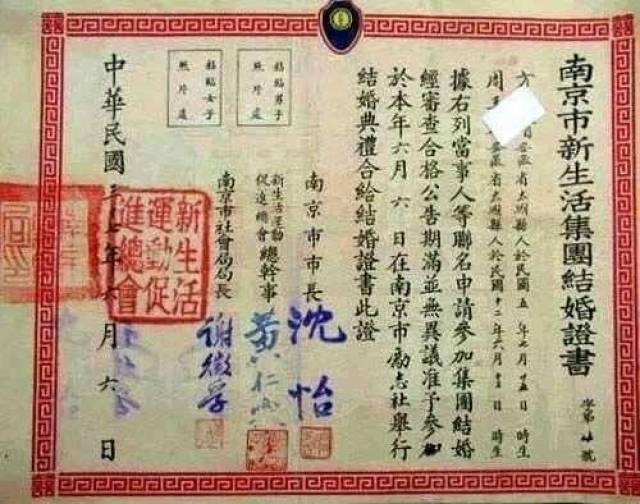 南京市新生活集團結婚證書
字第 號
方 安徽省太湖縣人於民國五年七月十五日 時生
周 安徽省太湖縣人於民國十二年六月 日 時生
據右列當事人等聯名申請參加集團結婚
經審查合格公告期滿並無異議准予參加
於本年六月六日在南京市勵志社舉行
結婚典禮合給結婚證書此證
南京市市長 沈怡
新生活運動促進總會總幹事 黃仁
南京市社會局局長 謝徵孚
粘貼男子照片處
粘貼女子照片處
中華民國三十 年六月六日
新生活運動促進總會